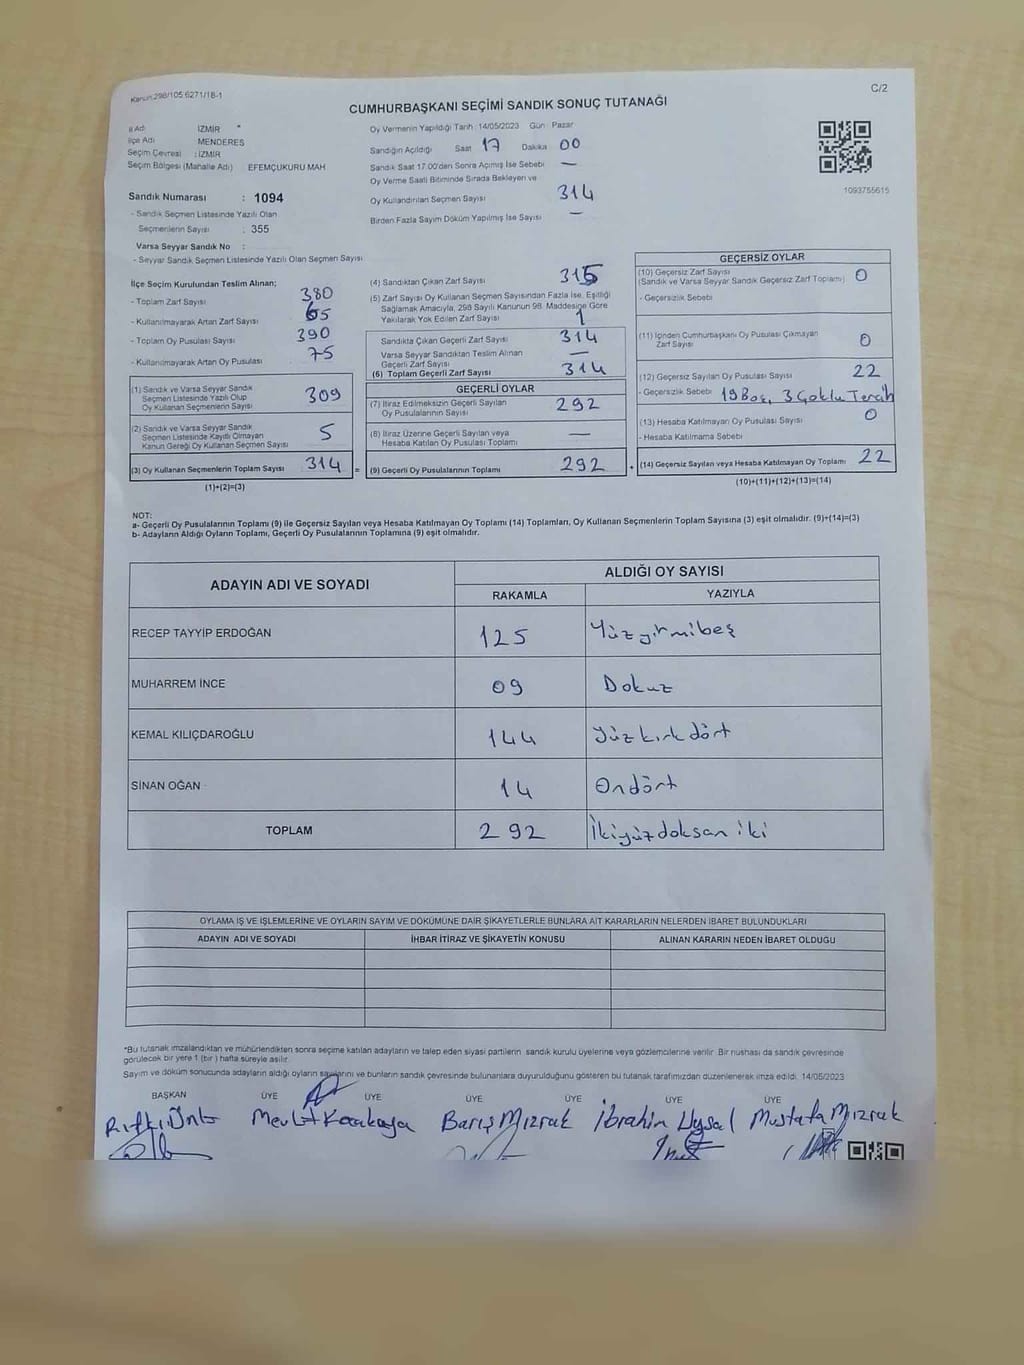 Kanun:298/105 6271/18-1
C/2
CUMHURBAŞKANI SEÇİMİ SANDIK SONUÇ TUTANAĞI
İl Adı İZMİR
İlçe Adı MENDERES
Seçim Çevresi : İZMİR
Seçim Bölgesi (Mahalle Adı) EFEMÇUKURU MAH
Sandık Numarası : 1094
- Sandık Seçmen Listesinde Yazılı Olan
Seçmenlerin Sayısı : 355
Varsa Seyyar Sandık No :
- Seyyar Sandık Seçmen Listesinde Yazılı Olan Seçmen Sayısı
Oy Vermenin Yapıldığı Tarih : 14/05/2023 Gün : Pazar
Sandığın Açıldığı Saat 17 Dakika 00
Sandık Saat 17.00'den Sonra Açılmış İse Sebebi —
Oy Verme Saati Bitiminde Sırada Bekleyen ve
Oy Kullandırılan Seçmen Sayısı 314
Birden Fazla Sayım Döküm Yapılmış İse Sayısı —
1093755615
İlçe Seçim Kurulundan Teslim Alınan;
- Toplam Zarf Sayısı 380
- Kullanılmayarak Artan Zarf Sayısı 65
- Toplam Oy Pusulası Sayısı 390
- Kullanılmayarak Artan Oy Pusulası 75
(1) Sandık ve Varsa Seyyar Sandık
Seçmen Listesinde Yazılı Olup
Oy Kullanan Seçmenlerin Sayısı 309
(2) Sandık ve Varsa Seyyar Sandık
Seçmen Listesinde Kayıtlı Olmayan
Kanun Gereği Oy Kullanan Seçmen Sayısı 5
(3) Oy Kullanan Seçmenlerin Toplam Sayısı 314 =
(1)+(2)=(3)
(4) Sandıktan Çıkan Zarf Sayısı 315
(5) Zarf Sayısı Oy Kullanan Seçmen Sayısından Fazla İse, Eşitliği
Sağlamak Amacıyla, 298 Sayılı Kanunun 98. Maddesine Göre
Yakılarak Yok Edilen Zarf Sayısı 1
Sandıkta Çıkan Geçerli Zarf Sayısı 314
Varsa Seyyar Sandıktan Teslim Alınan
Geçerli Zarf Sayısı —
(6) Toplam Geçerli Zarf Sayısı 314
GEÇERLİ OYLAR
(7) İtiraz Edilmeksizin Geçerli Sayılan
Oy Pusulalarının Sayısı 292
(8) İtiraz Üzerine Geçerli Sayılan veya
Hesaba Katılan Oy Pusulası Toplamı —
(9) Geçerli Oy Pusulalarının Toplamı 292 +
GEÇERSİZ OYLAR
(10) Geçersiz Zarf Sayısı
(Sandık ve Varsa Seyyar Sandık Geçersiz Zarf Toplamı) 0
- Geçersizlik Sebebi
(11) İçinden Cumhurbaşkanı Oy Pusulası Çıkmayan
Zarf Sayısı 0
(12) Geçersiz Sayılan Oy Pusulası Sayısı 22
- Geçersizlik Sebebi 19 Boş, 3 Çoklu Tercih
(13) Hesaba Katılmayan Oy Pusulası Sayısı 0
- Hesaba Katılmama Sebebi
(14) Geçersiz Sayılan veya Hesaba Katılmayan Oy Toplamı 22
(10)+(11)+(12)+(13)=(14)
NOT:
a- Geçerli Oy Pusulalarının Toplamı (9) ile Geçersiz Sayılan veya Hesaba Katılmayan Oy Toplamı (14) Toplamları, Oy Kullanan Seçmenlerin Toplam Sayısına (3) eşit olmalıdır. (9)+(14)=(3)
b- Adayların Aldığı Oyların Toplamı, Geçerli Oy Pusulalarının Toplamına (9) eşit olmalıdır.
ADAYIN ADI VE SOYADI ALDIĞI OY SAYISI
RAKAMLA YAZIYLA
RECEP TAYYİP ERDOĞAN 125 Yüzyirmibeş
MUHARREM İNCE 09 Dokuz
KEMAL KILIÇDAROĞLU 144 Yüzkırkdört
SİNAN OĞAN 14 Ondört
TOPLAM 292 İkiyüzdoksan iki
OYLAMA İŞ VE İŞLEMLERİNE VE OYLARIN SAYIM VE DÖKÜMÜNE DAİR ŞİKAYETLERLE BUNLARA AİT KARARLARIN NELERDEN İBARET BULUNDUKLARI
ADAYIN ADI VE SOYADI İHBAR İTİRAZ VE ŞİKAYETİN KONUSU ALINAN KARARIN NEDEN İBARET OLDUĞU
*Bu tutanak imzalandıktan ve mühürlendikten sonra seçime katılan adayların ve talep eden siyasi partilerin sandık kurulu üyelerine veya gözlemcilerine verilir. Bir nüshası da sandık çevresinde
görülecek bir yere 1 (bir) hafta süreyle asılır.
Sayım ve döküm sonucunda adayların aldığı oyların sayılarını ve bunların sandık çevresinde bulunanlara duyurulduğunu gösteren bu tutanak tarafımızdan düzenlenerek imza edildi. 14/05/2023
BAŞKAN ÜYE ÜYE ÜYE ÜYE ÜYE ÜYE
Rıfkı Ünlü Mevlüt Karakaya Barış Mızrak İbrahim Uysal Mustafa Mızrak